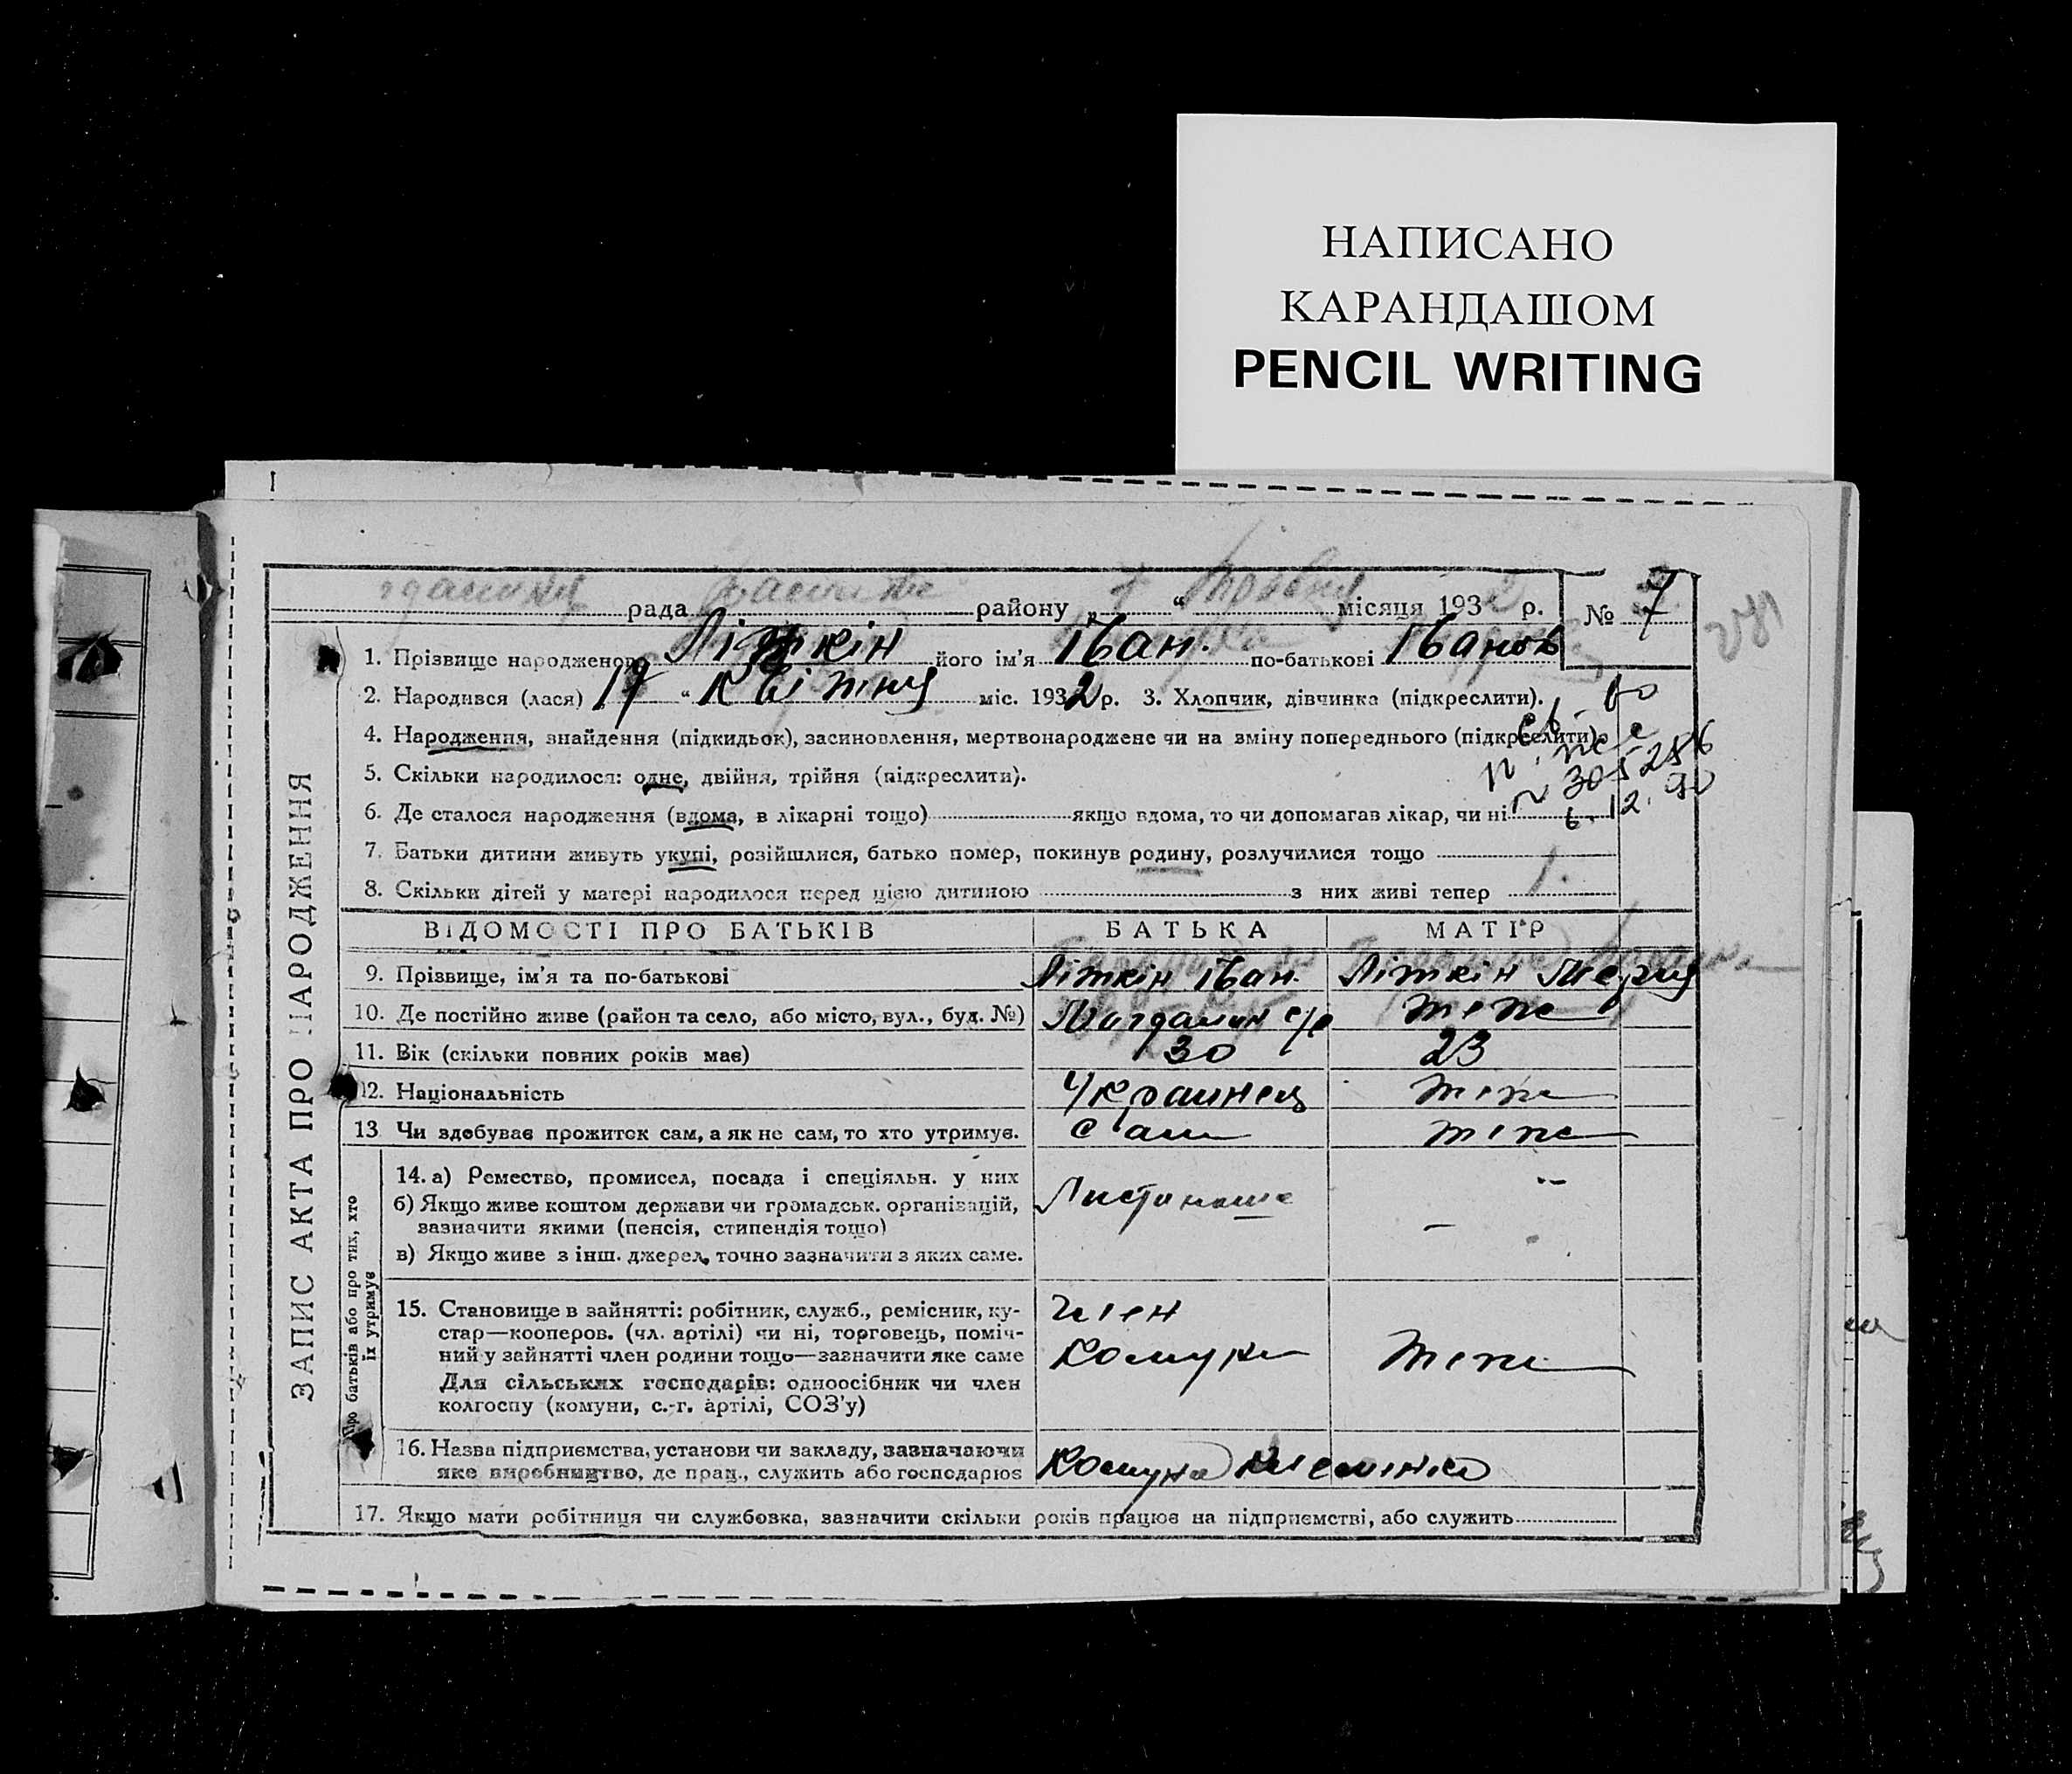 НАПИСАНО
КАРАНДАШОМ
PENCIL WRITING
рада району „ 7 “ місяця 1932 р. № 7
ЗАПИС АКТА ПРО НАРОДЖЕННЯ
1. Прізвище народженого Літкін його ім'я Іван. по-батькові Іванов
2. Народився (лася) 17 “ Квітня міс. 1932 р. 3. Хлопчик, дівчинка (підкреслити).
4. Народження, знайдення (підкидьок), засиновлення, мертвонароджене чи на зміну попереднього (підкреслити)
5. Скільки народилося: одне, двійня, трійня (підкреслити).
6. Де сталося народження (вдома, в лікарні тощо) якщо вдома, то чи допомагав лікар, чи ні
7. Батьки дитини живуть укупі, розійшлися, батько помер, покинув родину, розлучилися тощо
8. Скільки дітей у матері народилося перед цією дитиною з них живі тепер 1.
ВІДОМОСТІ ПРО БАТЬКІВ БАТЬКА МАТІР
9. Прізвище, ім'я та по-батькові Літкін Іван. Літкін
10. Де постійно живе (район та село, або місто, вул., буд. №) теж
11. Вік (скільки повних років має) 30 23
12. Національність Украинец теж
13. Чи здобуває прожиток сам, а як не сам, то хто утримує. сам теж
Про батьків або про тих, хто їх утримує
14. а) Ремество, промисел, посада і спеціяльн. у них
б) Якщо живе коштом держави чи громадськ. організацій,
зазначити якими (пенсія, стипендія тощо)
в) Якщо живе з інш. джерел, точно зазначити з яких саме.
15. Становище в зайнятті: робітник, служб., ремісник, ку-
стар—кооперов. (чл. артілі) чи ні, торговець, поміч-
ний у зайнятті член родини тощо—зазначити яке саме
Для сільських господарів: одноосібник чи член
колгоспу (комуни, с.-г. артілі, СОЗ'у)
член
Комуни теж
16. Назва підприємства, установи чи закладу, зазначаючи
яке виробництво, де прац., служить або господарює
Комуна
17. Якщо мати робітниця чи службовка, зазначити скільки років працює на підприємстві, або служить